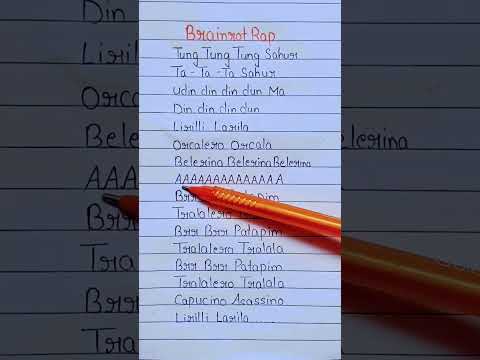 Brainrot Rap
Tung Tung Tung Sahur
Ta - Ta - Ta Sahur
Udin din din dun Ma
Din din din dun
Lirilli Larila
Orcalero Orcala
Belerina Belerina Belerina
AAAAAAAAAAAAA
Brr
Tralalero
Brr Brr Patapim
Tralalero Tralala
Brr Brr Patapim
Tralalero Tralala
Capucino Asassino
Lirilli Larila ......